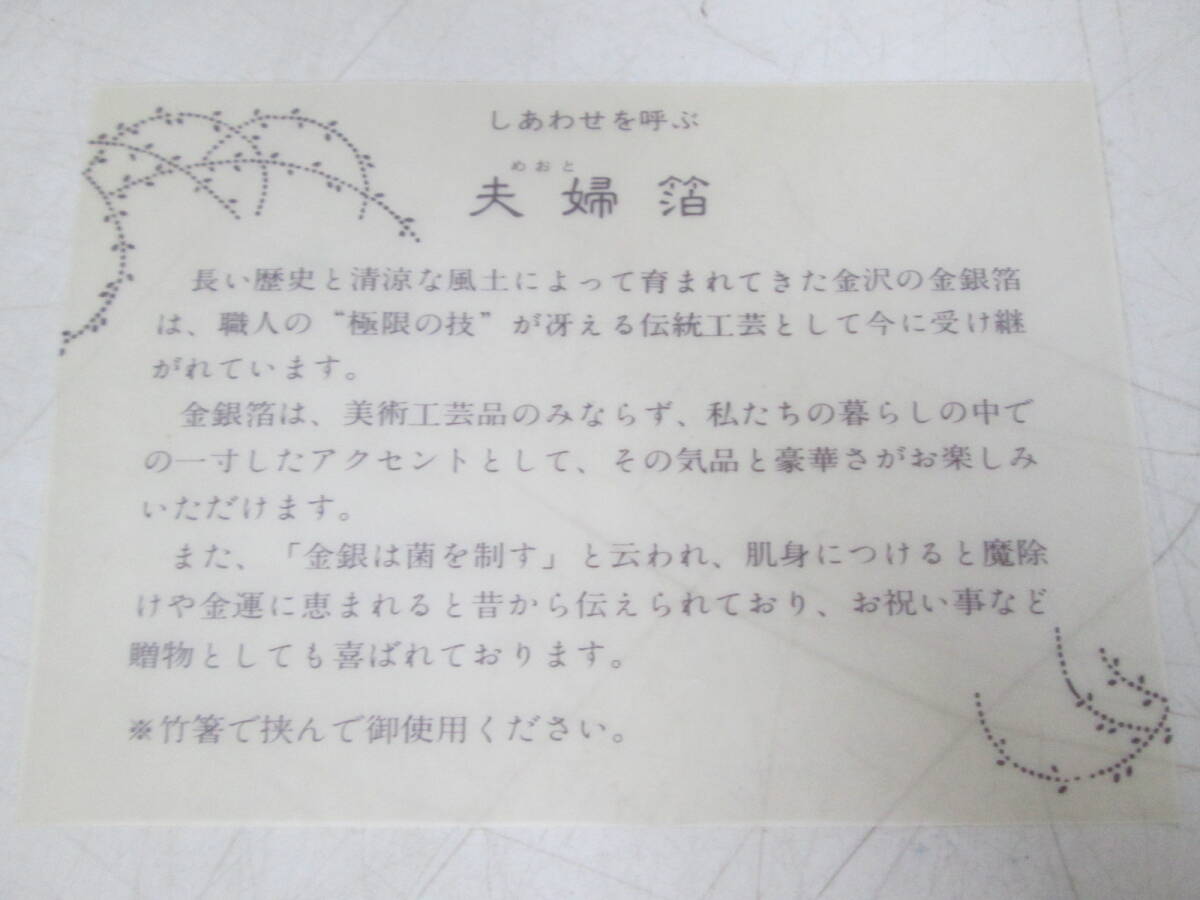 しあわせを呼ぶ
めおと
夫婦箔
長い歴史と清涼な風土によって育まれてきた金沢の金銀箔
は、職人の“極限の技”が冴える伝統工芸として今に受け継
がれています。
金銀箔は、美術工芸品のみならず、私たちの暮らしの中で
の一寸したアクセントとして、その気品と豪華さがお楽しみ
いただけます。
また、「金銀は菌を制す」と云われ、肌身につけると魔除
けや金運に恵まれると昔から伝えられており、お祝い事など
贈物としても喜ばれております。
※竹箸で挟んで御使用ください。